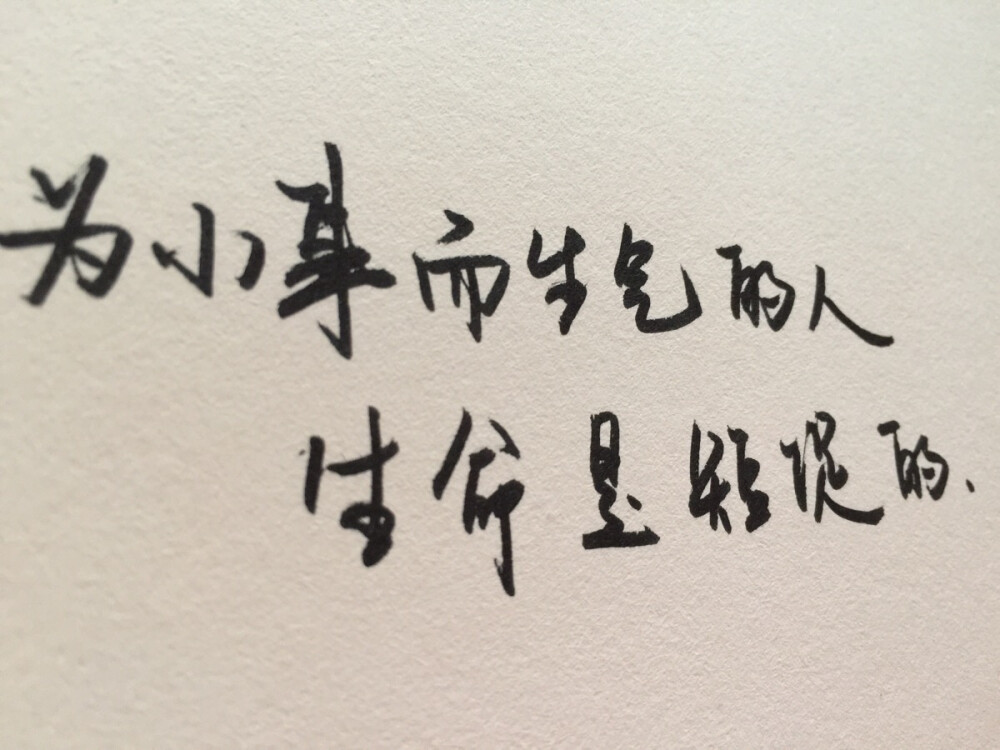 为小事而生气的人
生命是短促的.